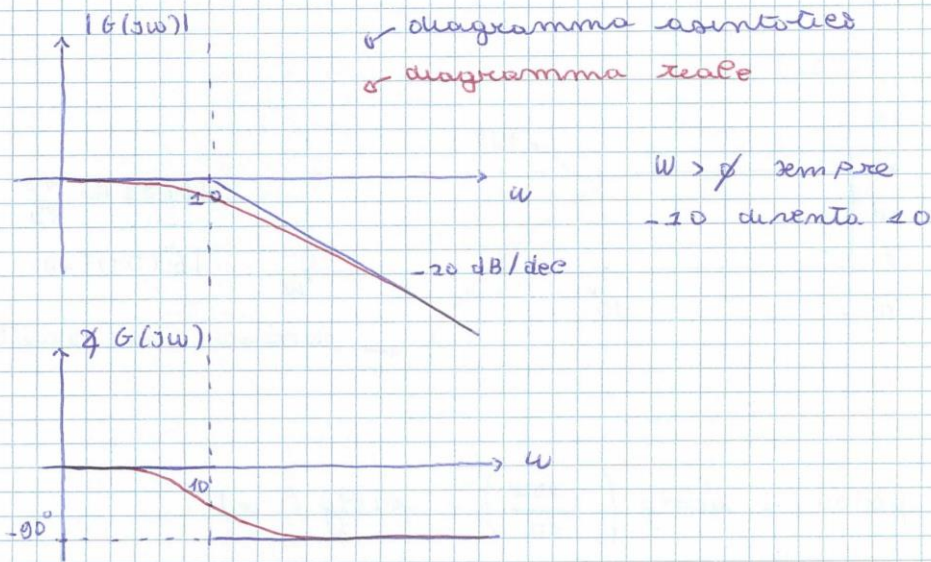 |G(jω)|
diagramma asintotico
diagramma reale
10
ω
ω > 0 sempre
-10 diventa 10
-20 dB/dec
∡ G(jω)
ω
10
-90°